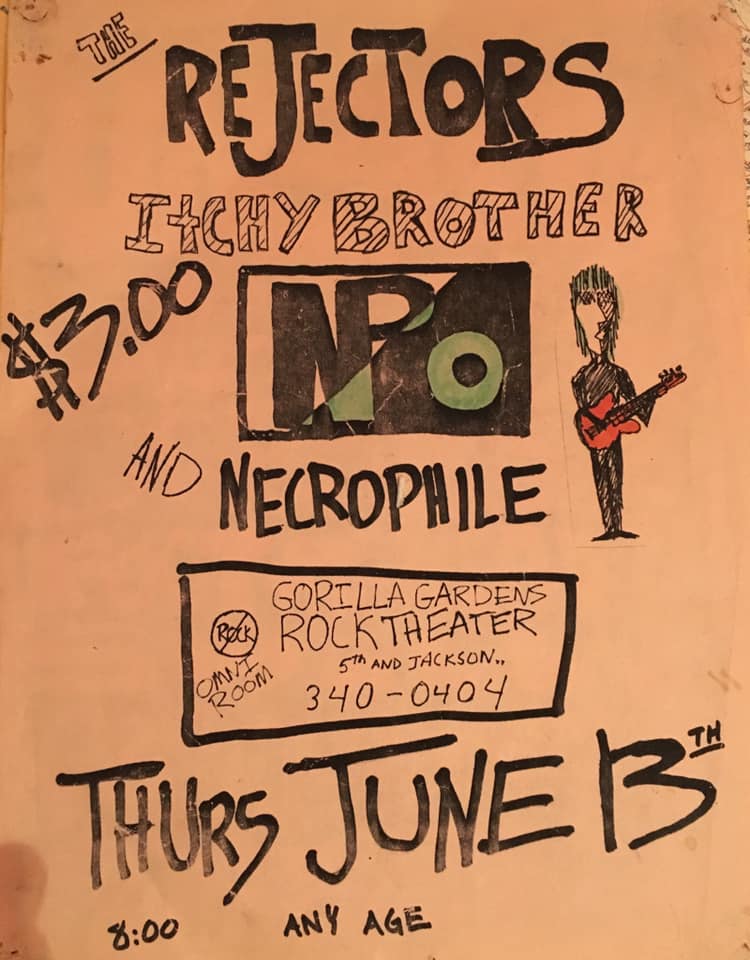 THE
REJECTORS
ITCHY BROTHER
$3.00
NPO
AND NECROPHILE
GORILLA GARDENS
ROCK ROCK THEATER
OMNI ROOM
5TH AND JACKSON..
340-0404
THURS JUNE 13TH
8:00 ANY AGE